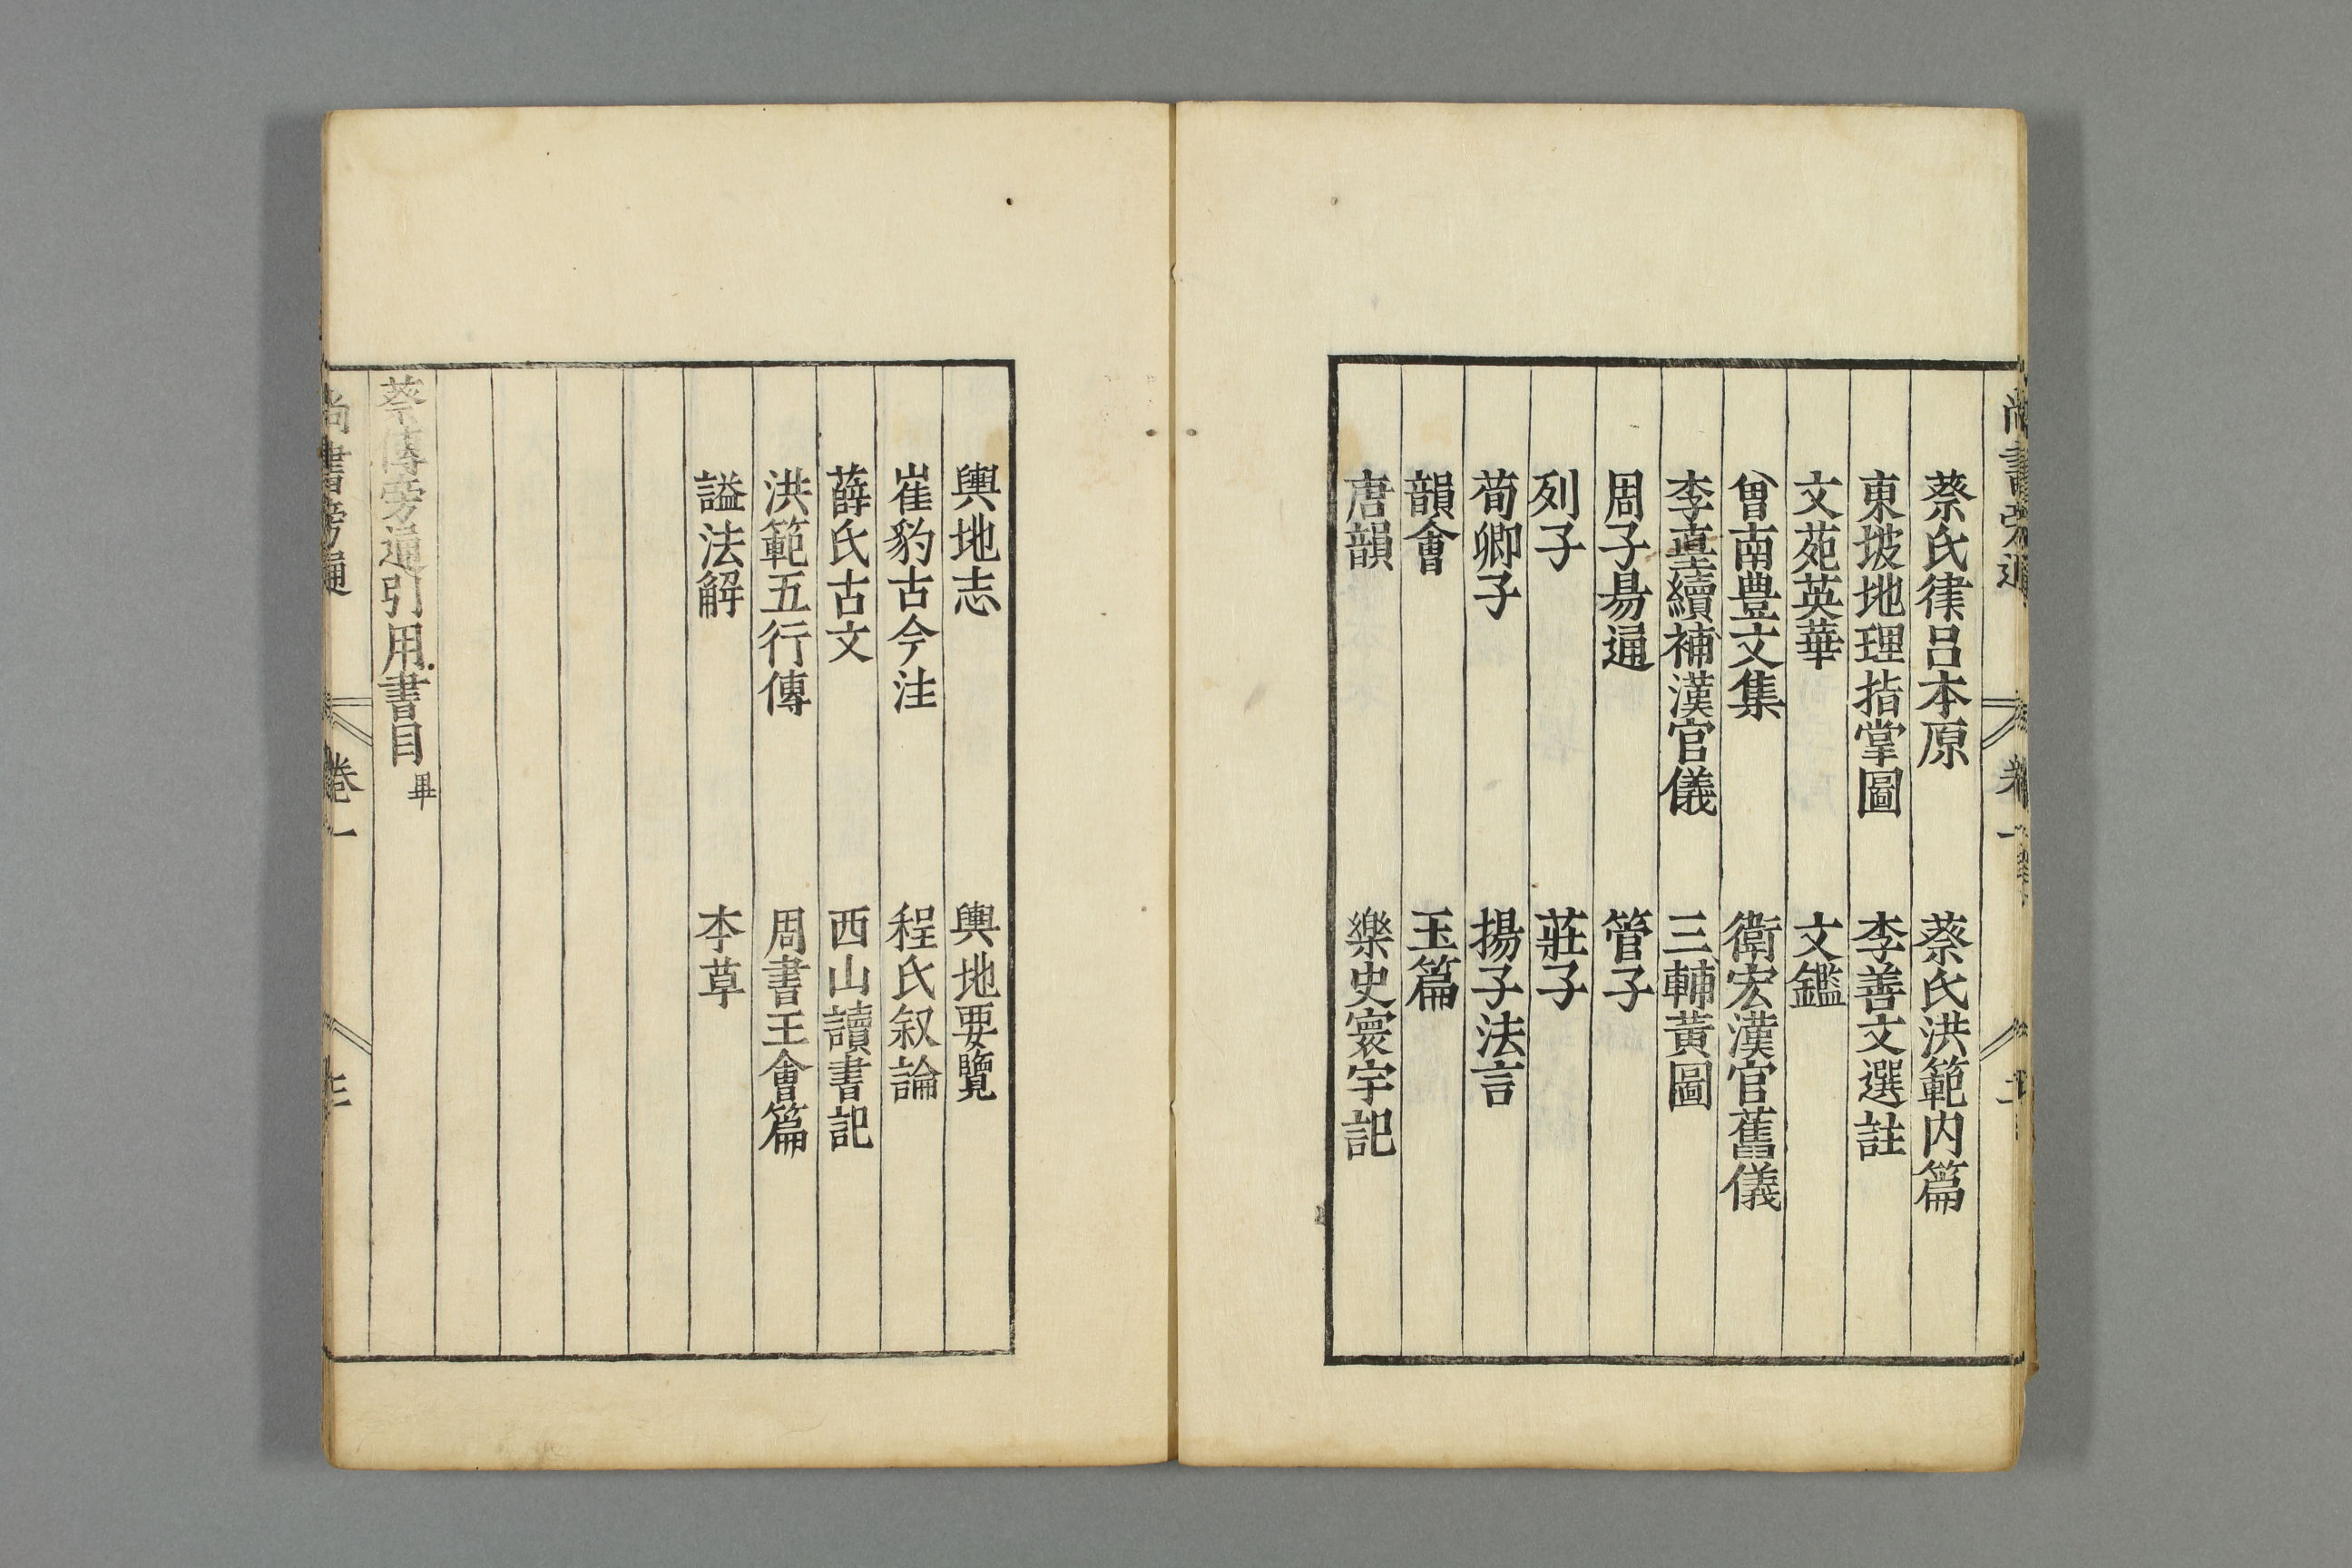 尚書旁通 卷一 二
蔡氏律呂本原 蔡氏洪範內篇
東坡地理指掌圖 李善文選註
文苑英華 文鑑
曾南豊文集 衛宏漢官舊儀
李𡊮續補漢官儀 三輔黃圖
周子昜通 管子
列子 莊子
荀卿子 揚子法言
韻會 玉篇
唐韻 樂史寰宇記
輿地志 輿地要覽
崔豹古今注 程氏叙論
薛氏古文 西山讀書記
洪範五行傳 周書王會篇
謚法解 本草
蔡傳旁通引用書目畢
尚書旁通 卷一